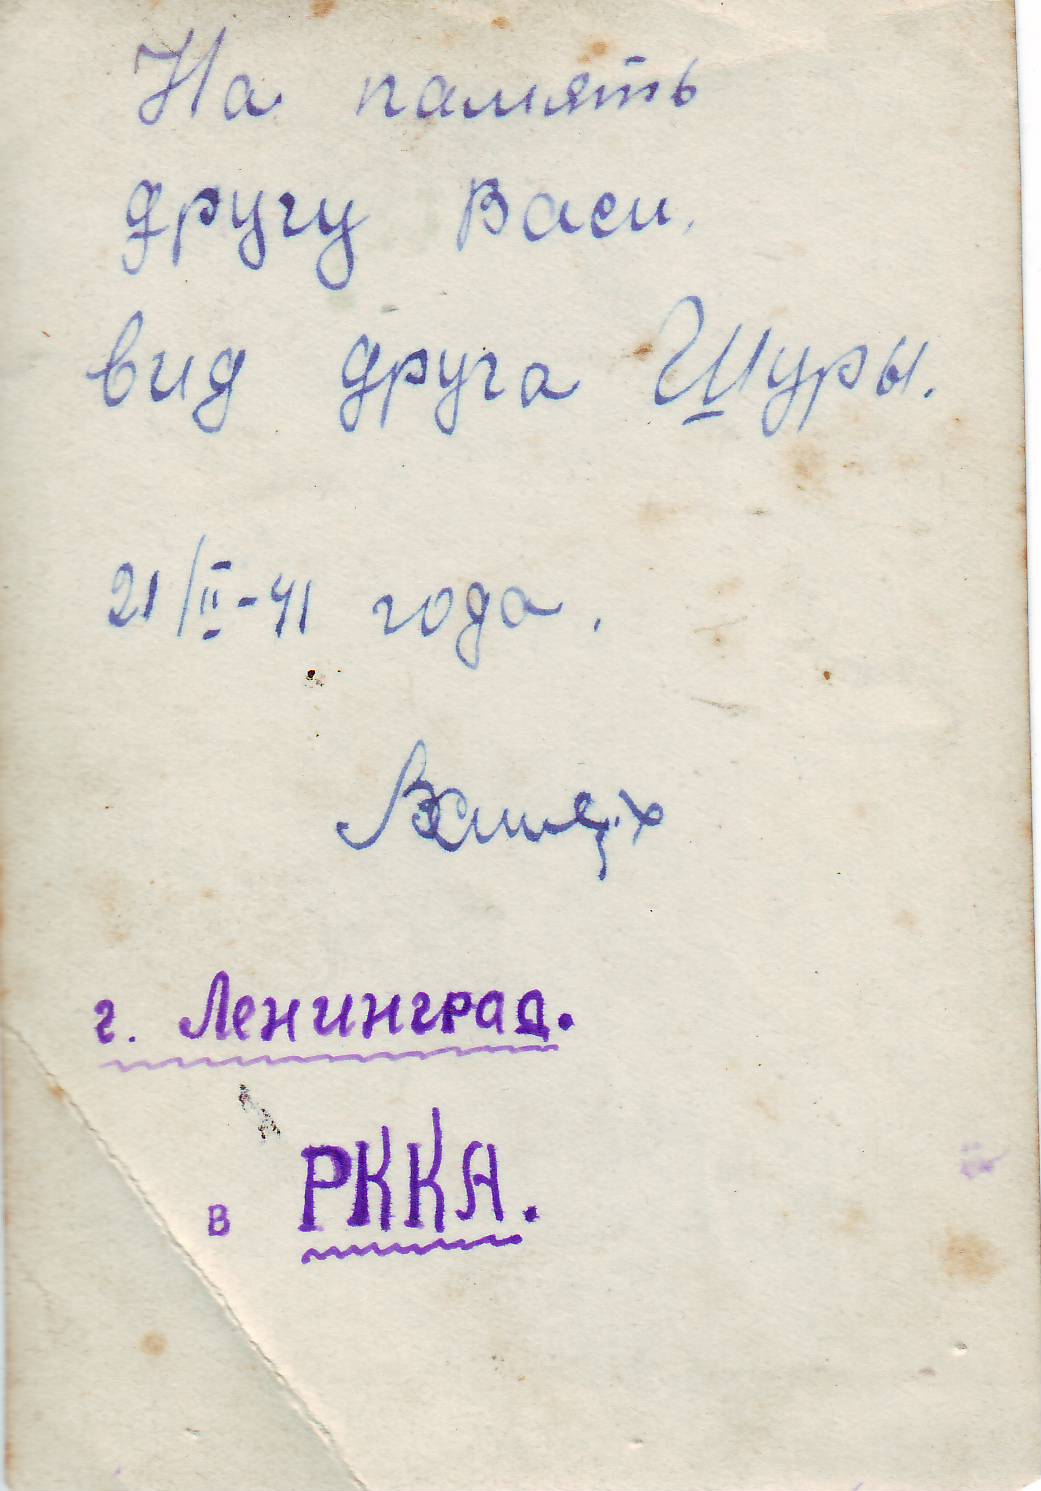 На память
другу Васи.
вид друга Шуры.
21/II-41 года.
г. Ленинград.
в РККА.